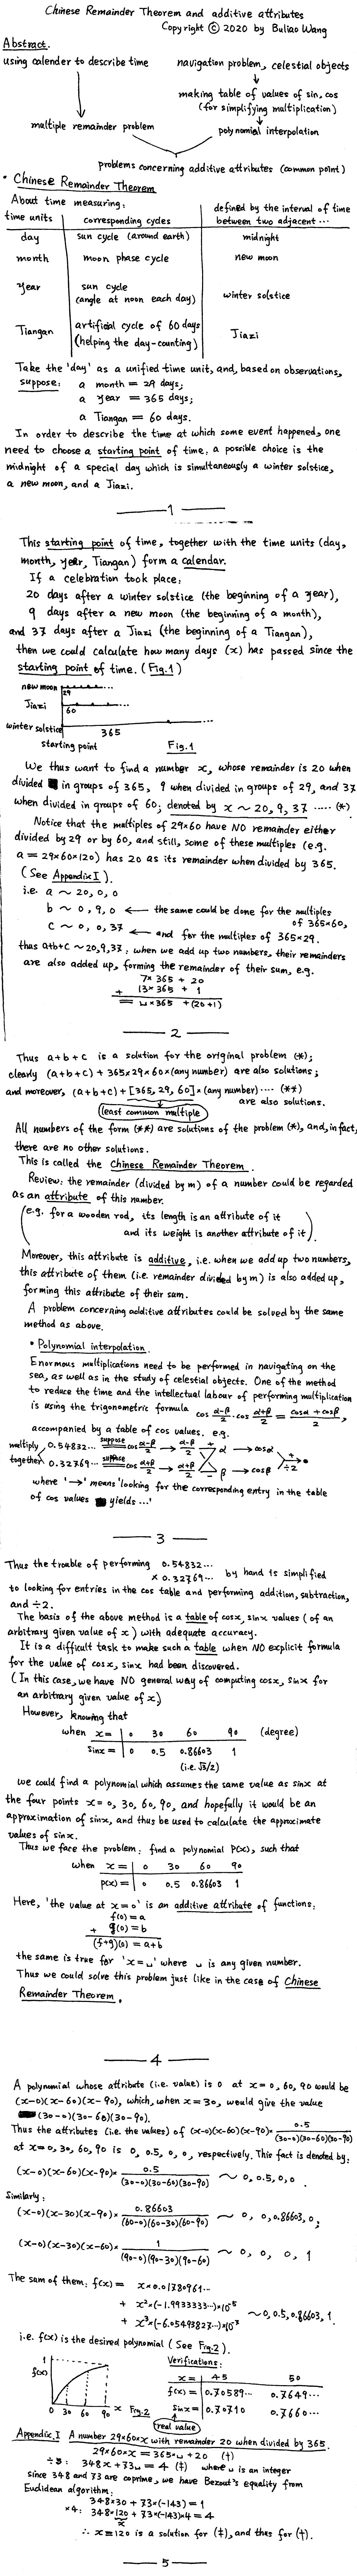 Chinese Remainder Theorem and additive attributes
Copyright © 2020 by Buliao Wang
Abstract.
using calender to describe time
navigation problem, celestial objects
making table of values of sin, cos
(for simplifying multiplication)
multiple remainder problem
polynomial interpolation
problems concerning additive attributes (common point)
• Chinese Remainder Theorem
About time measuring:
time units | corresponding cycles | defined by the interval of time between two adjacent ...
day | sun cycle (around earth) | midnight
month | moon phase cycle | new moon
year | sun cycle (angle at noon each day) | winter solstice
Tiangan | artificial cycle of 60 days (helping the day-counting) | Jiazi
Take the 'day' as a unified time unit, and, based on observations,
suppose: a month = 29 days;
a year = 365 days;
a Tiangan = 60 days.
In order to describe the time at which some event happened, one
need to choose a starting point of time, a possible choice is the
midnight of a special day which is simultaneously a winter solstice,
a new moon, and a Jiazi.
1
This starting point of time, together with the time units (day,
month, year, Tiangan) form a calendar.
If a celebration took place:
20 days after a winter solstice (the beginning of a year),
9 days after a new moon (the beginning of a month),
and 37 days after a Jiazi (the beginning of a Tiangan),
then we could calculate how many days (x) has passed since the
starting point of time. (Fig.1)
new moon
29
Jiazi
60
winter solstice
365
starting point
Fig.1
We thus want to find a number x, whose remainder is 20 when
divided in groups of 365, 9 when divided in groups of 29, and 37
when divided in groups of 60; denoted by x ~ 20, 9, 37 ..... (*)
Notice that the multiples of 29×60 have NO remainder either
divided by 29 or by 60, and still, some of these multiples (e.g.
a = 29×60×120) has 20 as its remainder when divided by 365.
(See Appendix I).
i.e. a ~ 20, 0, 0
b ~ 0, 9, 0 ← the same could be done for the multiples of 365×60,
c ~ 0, 0, 37 ← and for the multiples of 365×29.
thus a+b+c ~ 20,9,37; when we add up two numbers, their remainders
are also added up, forming the remainder of their sum, e.g.
7×365 + 20
+ 13×365 + 1
= ␣×365 + (20+1)
2
Thus a+b+c is a solution for the original problem (*);
clearly (a+b+c) + 365×29×60×(any number) are also solutions;
and moreover, (a+b+c) + [365, 29, 60]×(any number) .... (**)
are also solutions.
least common multiple
All numbers of the form (**) are solutions of the problem (*), and, in fact,
there are no other solutions.
This is called the Chinese Remainder Theorem.
Review: the remainder (divided by m) of a number could be regarded
as an attribute of this number.
(e.g. for a wooden rod, its length is an attribute of it
and its weight is another attribute of it).
Moreover, this attribute is additive, i.e. when we add up two numbers,
this attribute of them (i.e. remainder divided by m) is also added up,
forming this attribute of their sum.
A problem concerning additive attributes could be solved by the same
method as above.
• Polynomial interpolation.
Enormous multiplications need to be performed in navigating on the
sea, as well as in the study of celestial objects. One of the method
to reduce the time and the intellectual labour of performing multiplication
is using the trigonometric formula cos (α-β)/2 · cos (α+β)/2 = (cosα + cosβ)/2,
accompanied by a table of cos values. e.g.
multiply together
0.54832... suppose = cos (α-β)/2 → (α-β)/2 + α → cosα
0.32769... suppose = cos (α+β)/2 → (α+β)/2 - β → cosβ
+ ÷2
where '→' means 'looking for the corresponding entry in the table
of cos values yields ...'
3
Thus the trouble of performing 0.54832... × 0.32769... by hand is simplified
to looking for entries in the cos table and performing addition, subtraction,
and ÷2.
The basis of the above method is a table of cosx, sinx values (of an
arbitrary given value of x) with adequate accuracy.
It is a difficult task to make such a table when NO explicit formula
for the value of cosx, sinx had been discovered.
(In this case, we have NO general way of computing cosx, sinx for
an arbitrary given value of x)
However, knowing that
when x = | 0 30 60 90 (degree)
sinx = | 0 0.5 0.86603 1
(i.e. √3/2)
we could find a polynomial which assumes the same value as sinx at
the four points x = 0, 30, 60, 90, and hopefully it would be an
approximation of sinx, and thus be used to calculate the approximate
values of sinx.
Thus we face the problem: find a polynomial P(x), such that
when x = | 0 30 60 90
P(x) = | 0 0.5 0.86603 1
Here, 'the value at x=0' is an additive attribute of functions:
f(0) = a
+ g(0) = b
(f+g)(0) = a+b
the same is true for 'x=␣' where ␣ is any given number.
Thus we could solve this problem just like in the case of Chinese
Remainder Theorem.
4
A polynomial whose attribute (i.e. value) is 0 at x = 0, 60, 90 would be
(x-0)(x-60)(x-90), which, when x = 30, would give the value
(30-0)(30-60)(30-90).
Thus the attributes (i.e. the values) of (x-0)(x-60)(x-90)× 0.5/((30-0)(30-60)(30-90))
at x=0, 30, 60, 90 is 0, 0.5, 0, 0, respectively. This fact is denoted by:
(x-0)(x-60)(x-90)× 0.5/((30-0)(30-60)(30-90)) ~ 0, 0.5, 0, 0.
Similarly:
(x-0)(x-30)(x-90)× 0.86603/((60-0)(60-30)(60-90)) ~ 0, 0, 0.86603, 0;
(x-0)(x-30)(x-60)× 1/((90-0)(90-30)(90-60)) ~ 0, 0, 0, 1
The sum of them: f(x) = x×0.01780961...
+ x²×(-1.9933333...)×10⁻⁵
+ x³×(-6.05493827...)×10⁻⁷ ~ 0, 0.5, 0.86603, 1.
i.e. f(x) is the desired polynomial (See Fig.2).
1
f(x)
0 30 60 90 x
Fig.2
Verifications:
x = | 45 50
f(x) = | 0.70589... 0.7649...
sinx = | 0.70710 0.7660...
real value
Appendix.I A number 29×60×x with remainder 20 when divided by 365.
29×60×x = 365×␣ + 20 (†)
÷5: 348x + 73␣ = 4 (‡) where ␣ is an integer
since 348 and 73 are coprime, we have Bezout's equality from
Euclidean algorithm.
348×30 + 73×(-143) = 1
×4: 348×120 + 73×(-143)×4 = 4
x
∴ x = 120 is a solution for (‡), and thus for (†).
5